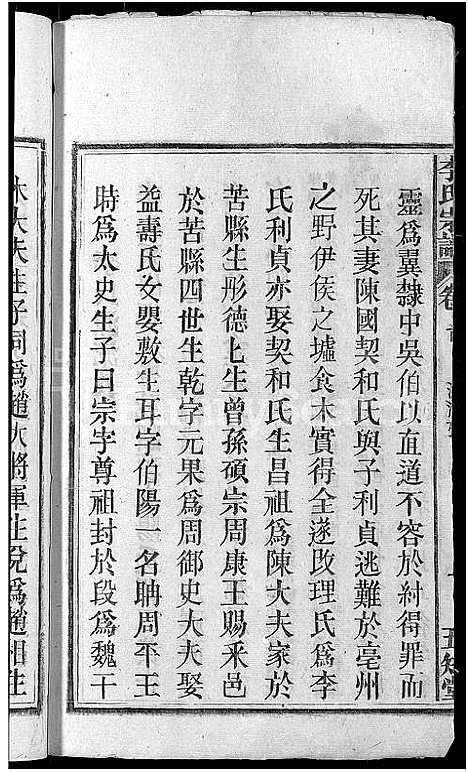 李氏宗譜 卷首
五知堂
靈爲翼隸中吳伯以直道不容於紂得罪而
死其妻陳國契和氏與子利貞逃難於亳州
之野伊侯之墟食木實得全遂改理氏爲李
氏利貞亦娶契和氏生昌祖爲陳大夫家於
苦縣生彤德七生曾孫碩宗周康王賜采邑
於苦縣四世生乾字元果爲周御史大夫娶
益壽氏女嬰敷生耳字伯陽一名聃周平王
時爲太史生子曰宗字尊祖封於段爲魏干
木大夫生子同爲趙大將軍生兌爲趙相生